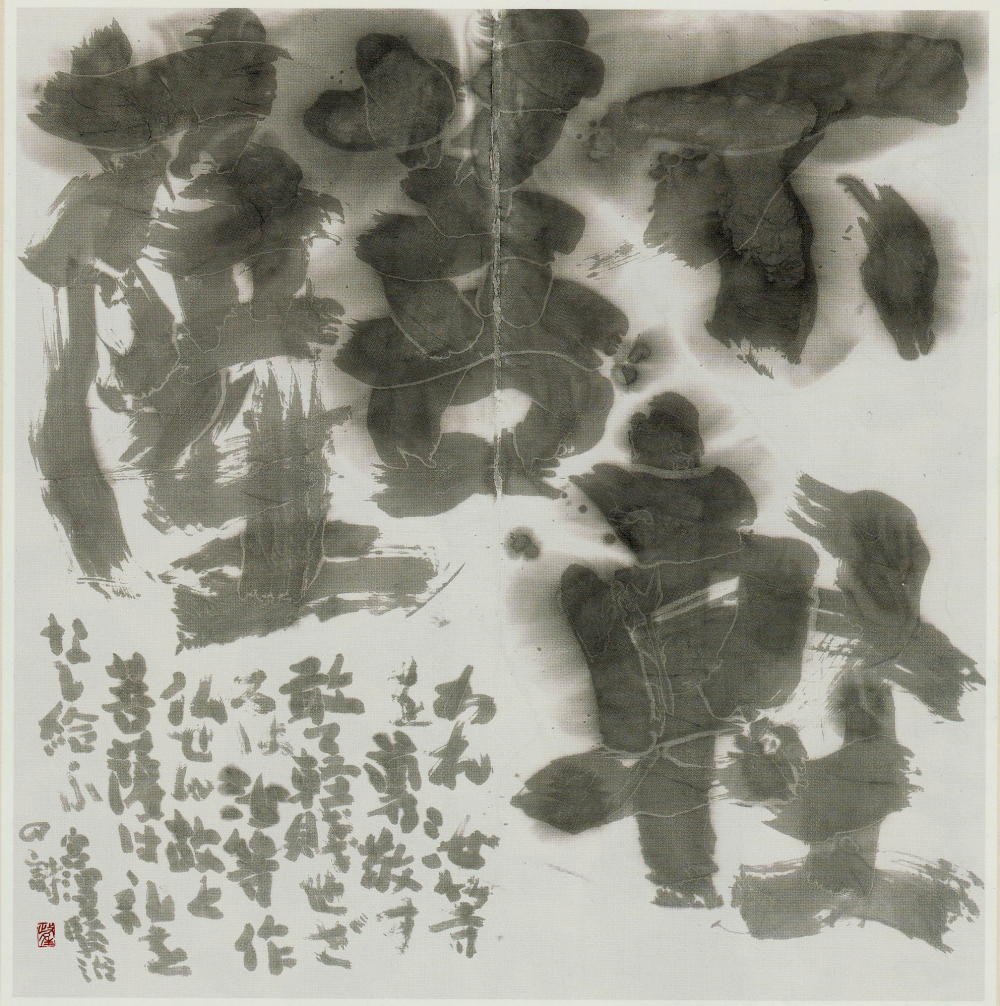 不軽
菩
薩
われ 汝等
を尊敬す
敢て軽賤せざ
るは汝等作
仏せん故と
菩薩は礼を
なし給ふ 宮澤賢治
の詩